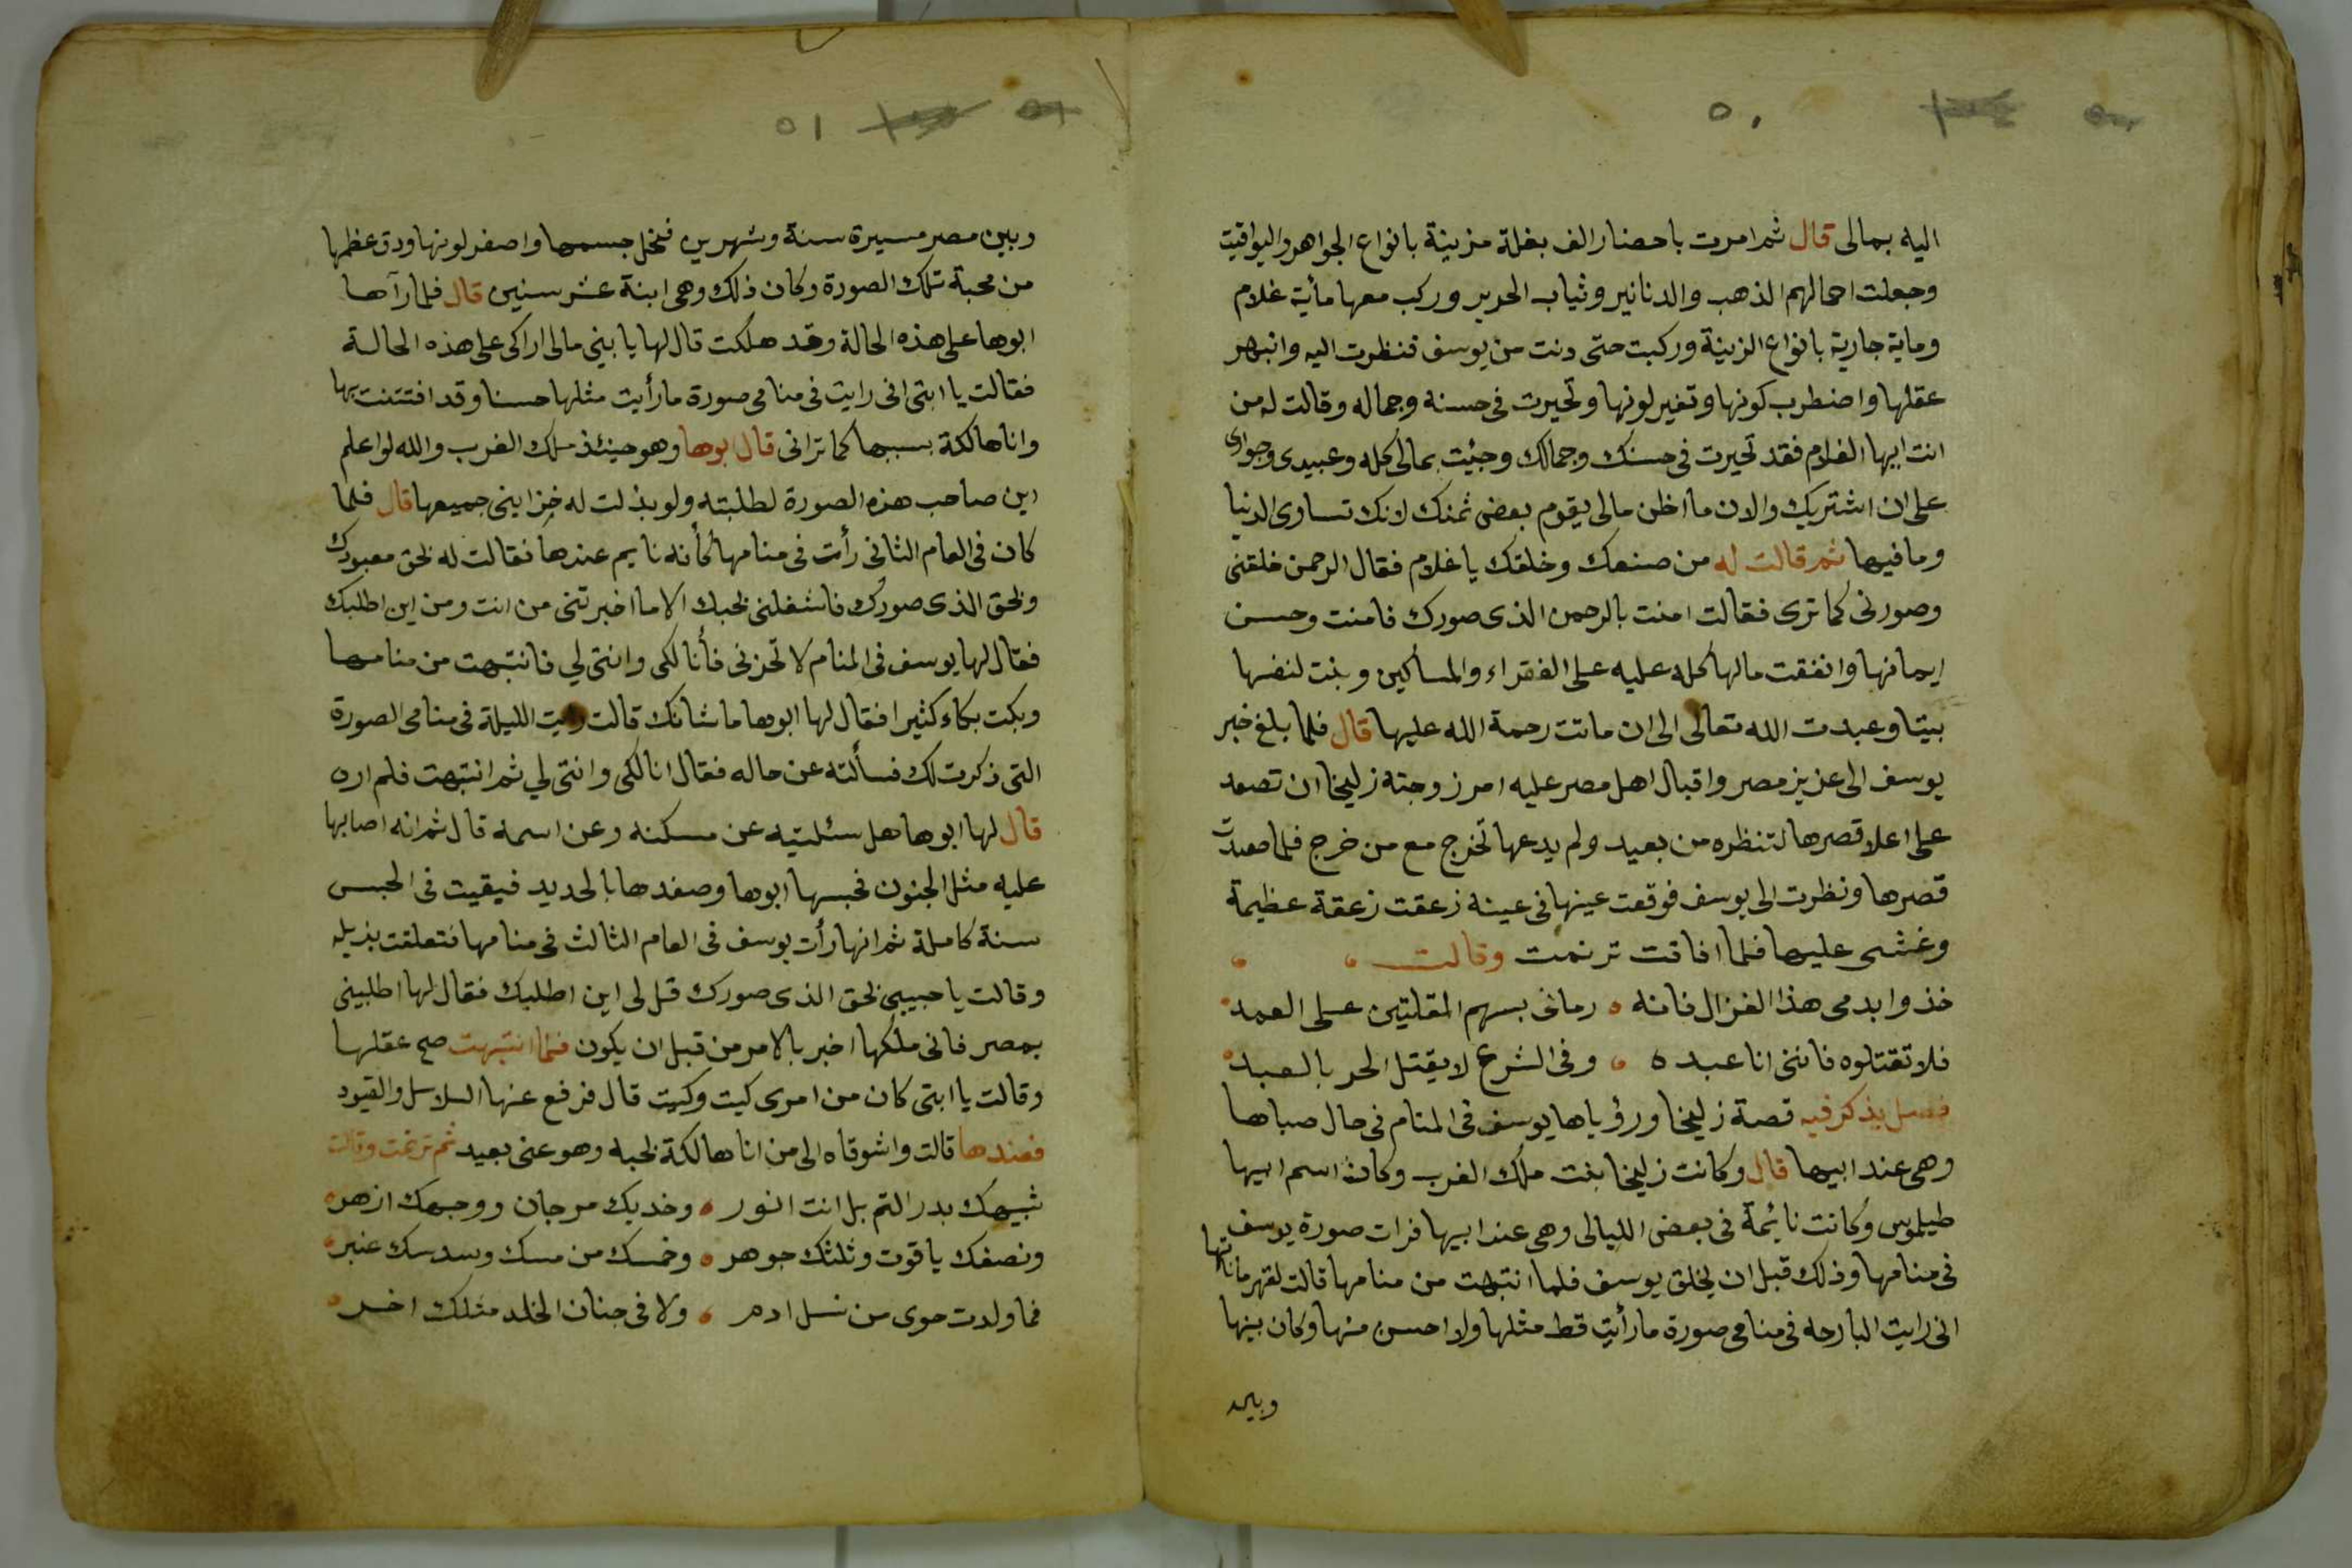 ٥٠
اليه بمالى قال ثم امرت باحضار الف بغلة مزينة بانواع الجواهر واليواقيت
وجعلت احمالهم الذهب والدنانير وثياب الحرير وركب معها مأية غلام
وماية جارية بانواع الزينة وركبت حتى دنت من يوسف فنظرت اليه وانبهر
عقلها واضطرب كونها وتغير لونها وتحيرت فى حسنه وجماله وقالت له من
انت ايها الغلام فقد تحيرت فى حسنك وجمالك وجئيت بمالى كله وعبيدى وجوارى
على ان اشتريك والان ما اظن مالى يقوم بعض ثمنك لانك تساوى الدنيا
وما فيها ثم قالت له من صنعك وخلقك يا غلام فقال الرحمن خلقنى
وصورنى كما ترى فقالت امنت بالرحمن الذى صورك فامنت وحسن
ايمانها وانفقت مالها كله عليه على الفقراء والمساكين وبنت لنفسها
بيتا وعبدت الله تعالى الى ان ماتت رحمة الله عليها قال فلما بلغ خبر
يوسف الى عزيز مصر واقبال اهل مصر عليه امر زوجته زليخا ان تصعد
على اعلا قصرها لتنظره من بعيد ولم يدعها تخرج مع من خرج فلما صعدت
قصرها ونظرت الى يوسف فوقعت عينها فى عينه زعقت زعقة عظيمة
وغشى عليها فلما افاقت ترنمت وقالت
خذوا بدمى هذا الغزال فانه ٥ رمانى بسهم المقلتين على العمد
فلا تقتلوه فاننى انا عبده ٥ وفى الشرع لا يقتل الحر بالعبد
فصل يذكر فيه قصة زليخا ورؤياها يوسف فى المنام فى حال صباها
وهى عند ابيها قال وكانت زليخا بنت ملك الغرب وكان اسم ابيها
طيلموس وكانت نائمة فى بعض الليالى وهى عند ابيها فرات صورة يوسف
فى منامها وذلك قبل ان يخلق يوسف فلما انتبهت من منامها قالت لقهرمانتها
انى رايت البارحه فى منامى صورة ما رأيت قط مثلها ولا احسن منها وكان بينها
وبين
٥١
وبين مصر مسيرة سنة وشهرين فنحل جسمها واصفر لونها ودق عظمها
من محبة تلك الصورة وكان ذلك وهى ابنة عشر سنين قال فلما رآها
ابوها على هذه الحالة وقد هلكت قال لها يا بنى مالى اراكى على هذه الحالة
فقالت يا ابتى انى رايت فى منامى صورة ما رأيت مثلها حسنا وقد افتتنت بها
وانا هالكة بسببها كما ترانى قال بوها وهو حينئذ ملك الغرب والله لو اعلم
اين صاحب هذه الصورة لطلبته ولو بذلت له خزاينى جميعها قال فلما
كان فى العام الثانى رأت فى منامها كأنه نايم عندها فقالت له بحق معبودك
وبحق الذى صورك فاشغلنى بحبك الا ما اخبرتنى من انت ومن اين اطلبك
فقال لها يوسف فى المنام لا تحزنى فأنا لكى وانتى لي فانتبهت من منامها
وبكت بكاء كثيرا فقال لها ابوها ما شانك قالت رايت الليلة فى منامى الصورة
التى ذكرت لك فسألته عن حاله فقال انا لكى وانتى لي ثم انتبهت فلم اره
قال لها ابوها هل سئلتيه عن مسكنه وعن اسمه قال ثم انه اصابها
عليه مثل الجنون فحبسها ابوها وصفدها بالحديد فبقيت فى الحبس
سنة كاملة ثم انها رأت يوسف فى العام الثالث فى منامها فتعلقت بذيله
وقالت يا حبيبى بحق الذى صورك قل لى اين اطلبك فقال لها اطلبينى
بمصر فانى ملكها اخبر بالامر من قبل ان يكون فلما انتبهت صح عقلها
وقالت يا ابتى كان من امرى كيت وكيت قال فرفع عنها السلاسل والقيود
فعندها قالت واشوقاه الى من انا هالكة بحبه وهو عنى بعيد ثم ترنمت وقالت
شبيهك بدر التم بل انت انور ٥ وخديك مرجان ووجهك ازهر
ونصفك ياقوت وثلثك جوهر ٥ وخمسك من مسك وسدسك عنبر
فما ولدت حوى من نسل ادم ٥ ولا فى جنان الخلد مثلك اخر